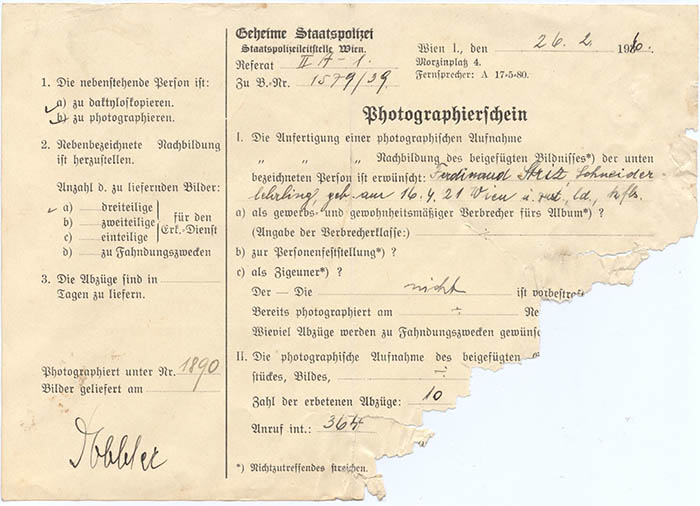 1. Die nebenstehende Person ist:
a) zu daktyloskopieren.
b) zu photographieren.
2. Nebenbezeichnete Nachbildung
ist herzustellen.
Anzahl d. zu liefernden Bilder:
a) dreiteilige
b) zweiteilige
c) einteilige
für den
Erk.-Dienst
d) zu Fahndungszwecken
3. Die Abzüge sind in
Tagen zu liefern.
Photographiert unter Nr. 1890
Bilder geliefert am
Geheime Staatspolizei
Staatspolizeileitstelle Wien.
Referat II A-1.
Zu B.-Nr. 1579/39
Wien I., den 26. 2. 19
Morzinplatz 4.
Fernsprecher: A 17-5-80.
Photographierschein
I. Die Anfertigung einer photographischen Aufnahme
„ „ Nachbildung des beigefügten Bildnisses*) der unten
bezeichneten Person ist erwünscht: Ferdinand Schneider-
lehrling, geb. am 16.4.21 Wien
a) als gewerbs- und gewohnheitsmäßiger Verbrecher fürs Album*) ?
(Angabe der Verbrecherklasse:)
b) zur Personenfeststellung*) ?
c) als Zigeuner*) ?
Der — Die nicht ist vorbestraf
Bereits photographiert am ÷ Ne
Wieviel Abzüge werden zu Fahndungszwecken gewünsc
II. Die photographische Aufnahme des beigefügten
stückes, Bildes, ÷
Zahl der erbetenen Abzüge: 10
Anruf int.: 364
*) Nichtzutreffendes streichen.